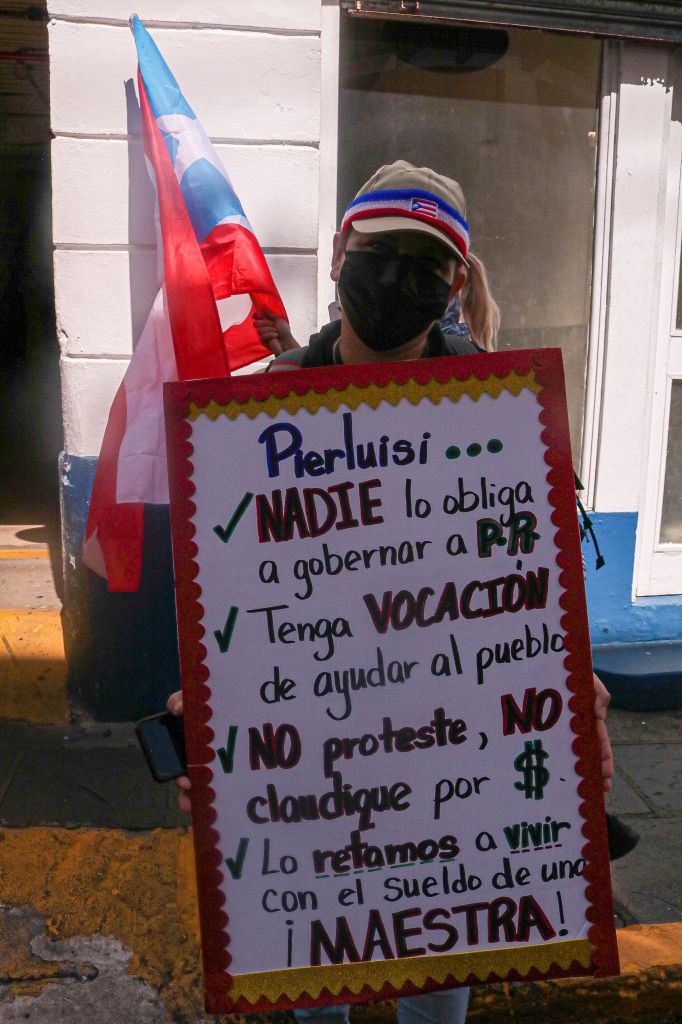 Pierluisi ...
✓ NADIE lo obliga
a gobernar a P.R.
✓ Tenga VOCACIÓN
de ayudar al pueblo
✓ NO proteste, NO
claudique por $.
✓ Lo retamos a vivir
con el sueldo de una
¡MAESTRA!